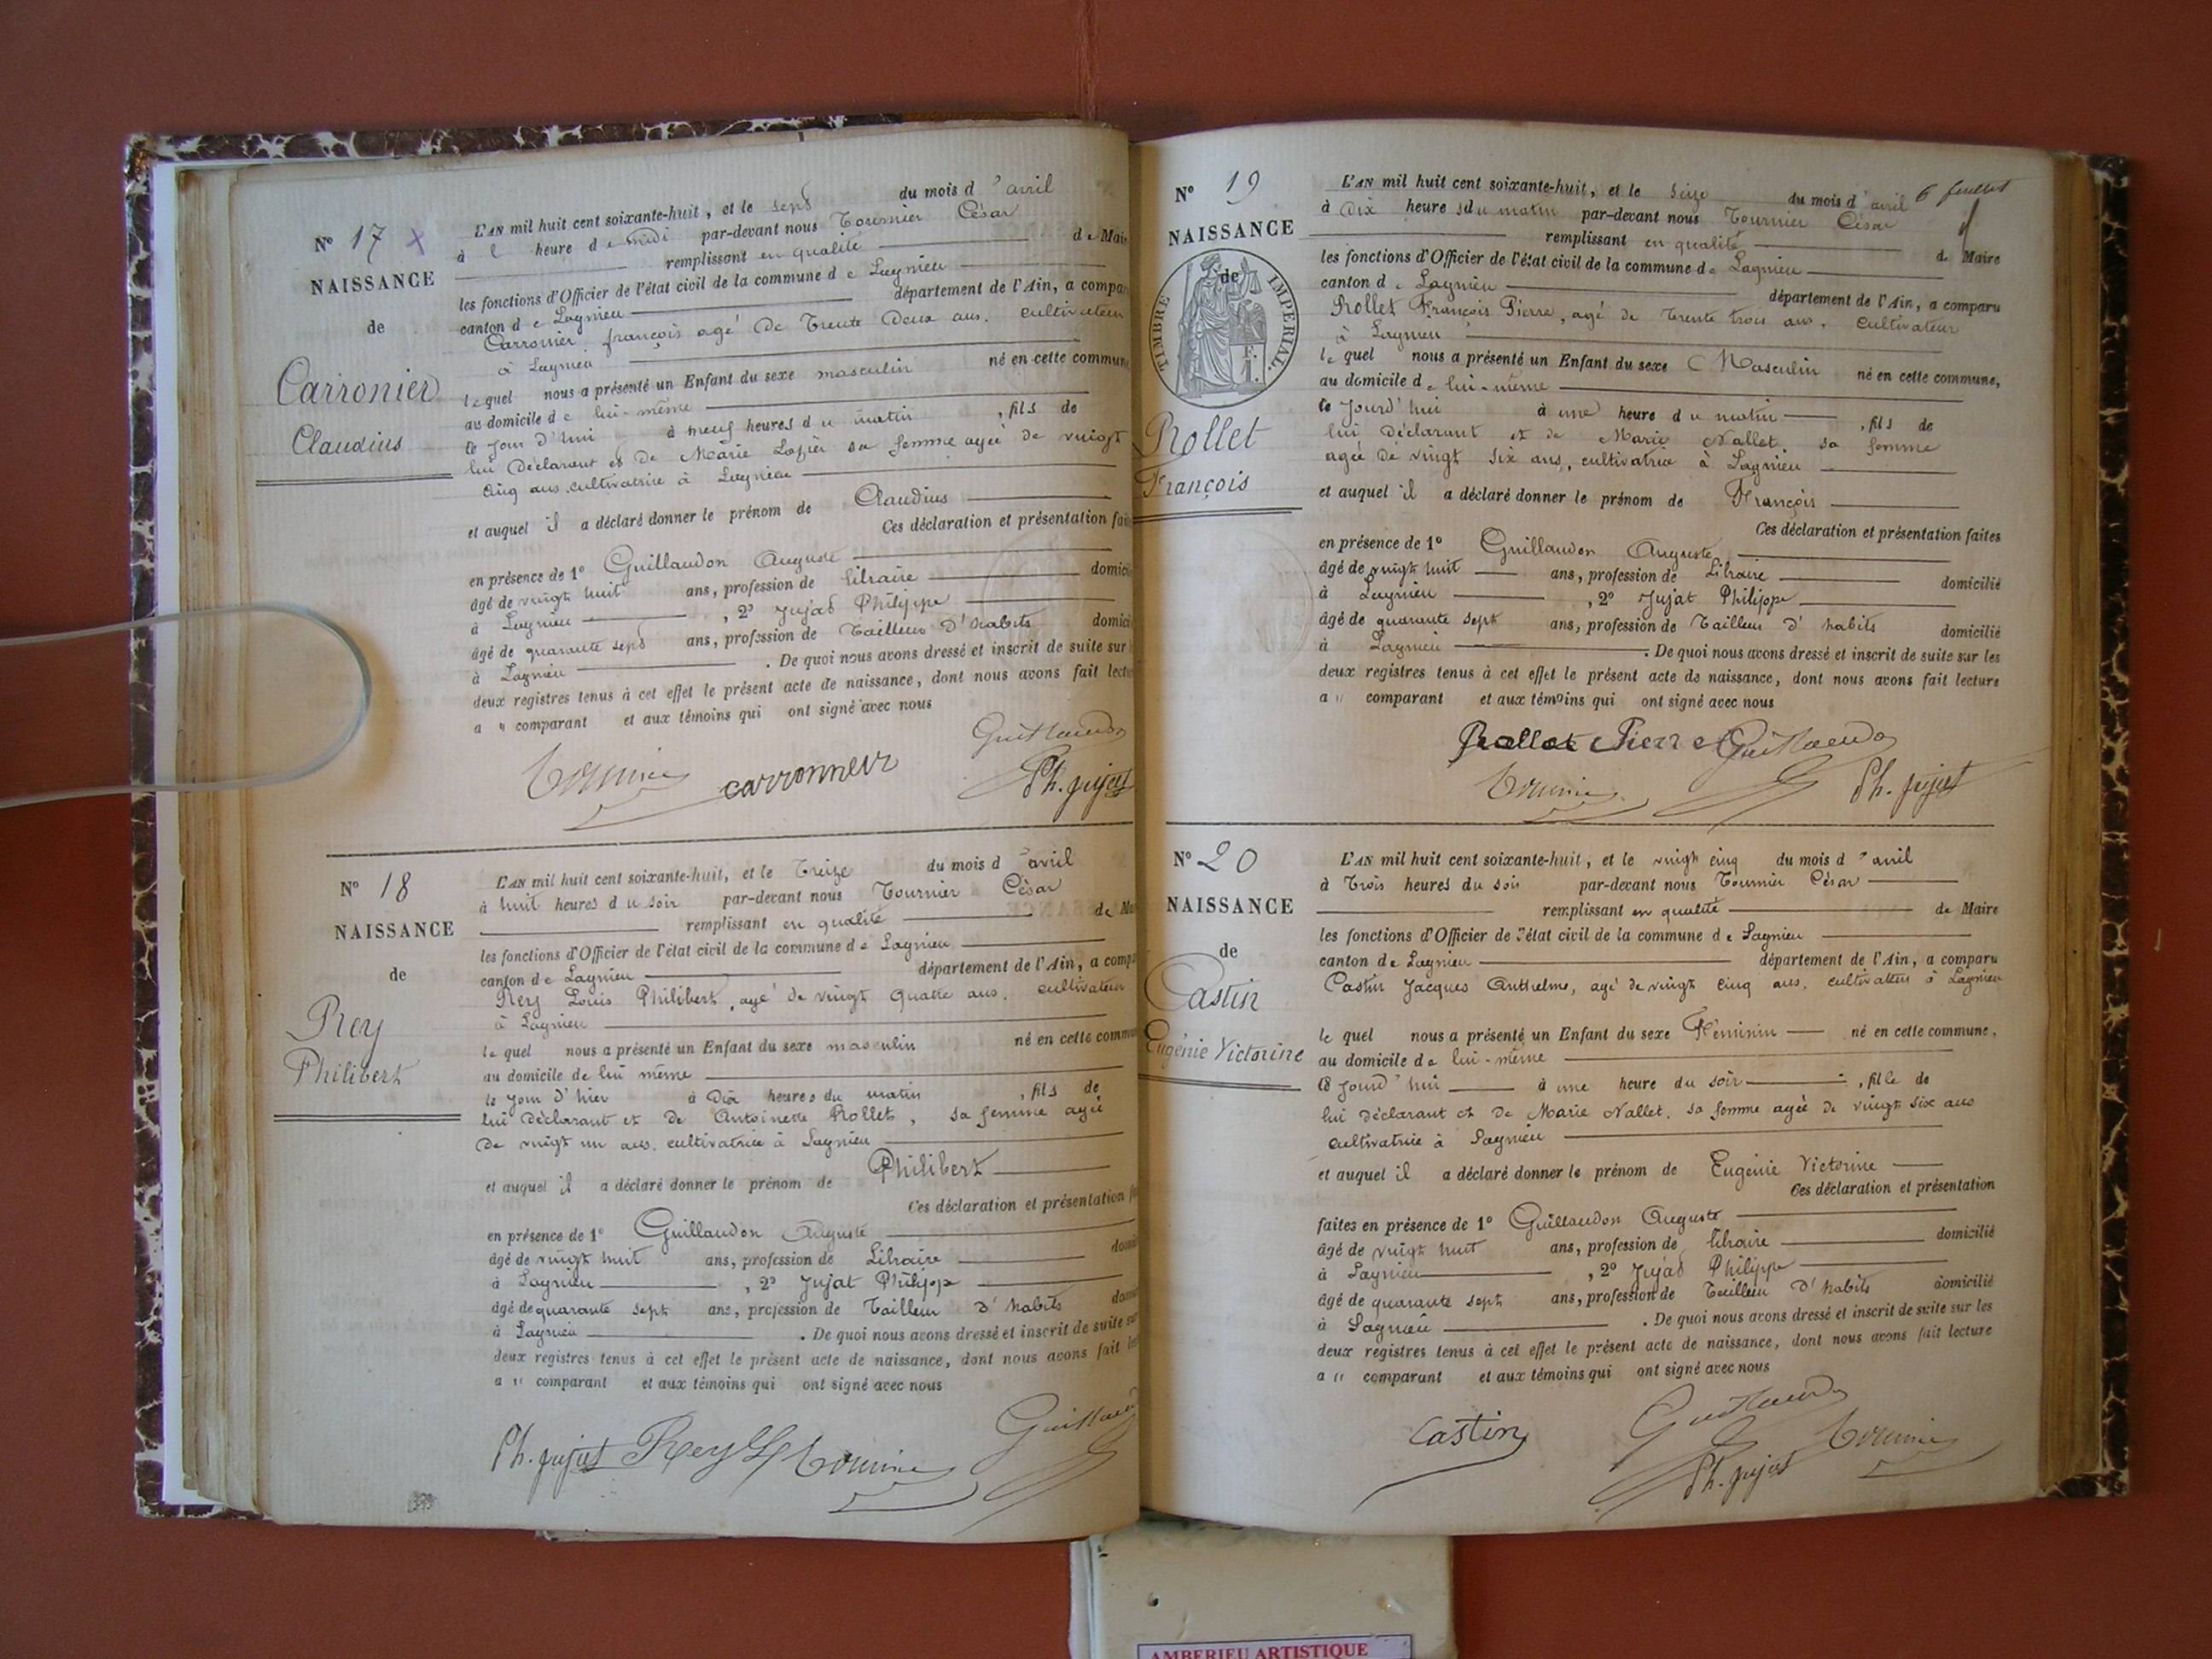 N° 17 X
NAISSANCE
de
Carronier
Claudius
L'AN mil huit cent soixante-huit, et le sept du mois d'avril
à l heure de midi par-devant nous Tournier César
remplissant en qualité de Mair
les fonctions d'Officier de l'état civil de la commune de Lagnieu
canton de Lagnieu département de l'Ain, a compar
Carronier françois agé de trente deux ans, cultivateur
à Lagnieu
lequel nous a présenté un Enfant du sexe masculin né en cette commune
au domicile de lui-même
le jour d'hui à neuf heures du matin, fils de
lui déclarant et de Marie sa femme agée de vingt
cinq ans cultivatrice à Lagnieu
et auquel il a déclaré donner le prénom de Claudius
Ces déclaration et présentation fait
en présence de 1° Guillaudon Auguste
âgé de vingt huit ans, profession de libraire domici
à Lagnieu, 2° Jujat Philippe
âgé de quarante sept ans, profession de Tailleur d'habits domici
à Lagnieu. De quoi nous avons dressé et inscrit de suite sur
deux registres tenus à cet effet le présent acte de naissance, dont nous avons fait lectu
a " comparant et aux témoins qui ont signé avec nous
Guillaudon
Tournier carronneir Ph. jujat
N° 18
NAISSANCE
de
Rey
Philibert
L'AN mil huit cent soixante-huit, et le Treize du mois d'avril
à huit heures du soir par-devant nous Tournier César
remplissant en qualité de Ma
les fonctions d'Officier de l'état civil de la commune de Lagnieu
canton de Lagnieu département de l'Ain, a comp
Rey Louis Philibert, agé de vingt quatre ans, cultivateur
à Lagnieu
lequel nous a présenté un Enfant du sexe masculin né en cette commun
au domicile de lui même
le jour d'hier à dix heures du matin, fils de
lui déclarant et de Antoinette Rollet, sa femme agée
de vingt un ans, cultivatrice à Lagnieu
et auquel il a déclaré donner le prénom de Philibert
Ces déclaration et présentation fa
en présence de 1° Guillaudon Auguste
âgé de vingt huit ans, profession de Libraire domi
à Lagnieu, 2° Jujat Philippe
âgé de quarante sept ans, profession de Tailleur d'habits dom
à Lagnieu. De quoi nous avons dressé et inscrit de suite sur
deux registres tenus à cet effet le présent acte de naissance, dont nous avons fait lec
a " comparant et aux témoins qui ont signé avec nous
Ph. jujat Rey Tournier Guillaud
6 feuillet
N° 19
NAISSANCE
de
TIMBRE IMPERIAL.
Rollet
François
L'AN mil huit cent soixante-huit, et le seize du mois d'avril
à dix heures du matin par-devant nous Tournier César
remplissant en qualité de Maire
les fonctions d'Officier de l'état civil de la commune de Lagnieu
canton de Lagnieu département de l'Ain, a comparu
Rollet François Pierre, agé de trente trois ans, cultivateur
à Lagnieu
lequel nous a présenté un Enfant du sexe Masculin né en cette commune,
au domicile de lui-même
ce jourd'hui à une heure du matin, fils de
lui déclarant et de Marie Nallet sa femme
agée de vingt six ans, cultivatrice à Lagnieu
et auquel il a déclaré donner le prénom de François
Ces déclaration et présentation faites
en présence de 1° Guillaudon Auguste
âgé de vingt huit ans, profession de Libraire domicilié
à Lagnieu, 2° Jujat Philippe
âgé de quarante sept ans, profession de Tailleur d'habits domicilié
à Lagnieu. De quoi nous avons dressé et inscrit de suite sur les
deux registres tenus à cet effet le présent acte de naissance, dont nous avons fait lecture
a " comparant et aux témoins qui ont signé avec nous
Rollet Pierre Guillaudon
Tournier Ph. jujat
N° 20
NAISSANCE
de
Castin
Eugénie Victorine
L'AN mil huit cent soixante-huit, et le vingt cinq du mois d'avril
à Trois heures du soir par-devant nous Tournier César
remplissant en qualité de Maire
les fonctions d'Officier de l'état civil de la commune de Lagnieu
canton de Lagnieu département de l'Ain, a comparu
Castin Jacques Anthelme, agé de vingt cinq ans, cultivateur à Lagnieu
le quel nous a présenté un Enfant du sexe Féminin né en cette commune,
au domicile de lui-même
ce jourd'hui à une heure du soir, fille de
lui déclarant et de Marie Nallet, sa femme agée de vingt six ans
cultivatrice à Lagnieu
et auquel il a déclaré donner le prénom de Eugénie Victorine
Ces déclaration et présentation
faites en présence de 1° Guillaudon Auguste
âgé de vingt huit ans, profession de libraire domicilié
à Lagnieu, 2° Jujat Philippe
âgé de quarante sept ans, profession de Tailleur d'habits domicilié
à Lagnieu. De quoi nous avons dressé et inscrit de suite sur les
deux registres tenus à cet effet le présent acte de naissance, dont nous avons fait lecture
a " comparant et aux témoins qui ont signé avec nous
Castin Guillaudon Tournier
Ph. jujat
AMBERIEU ARTISTIQUE